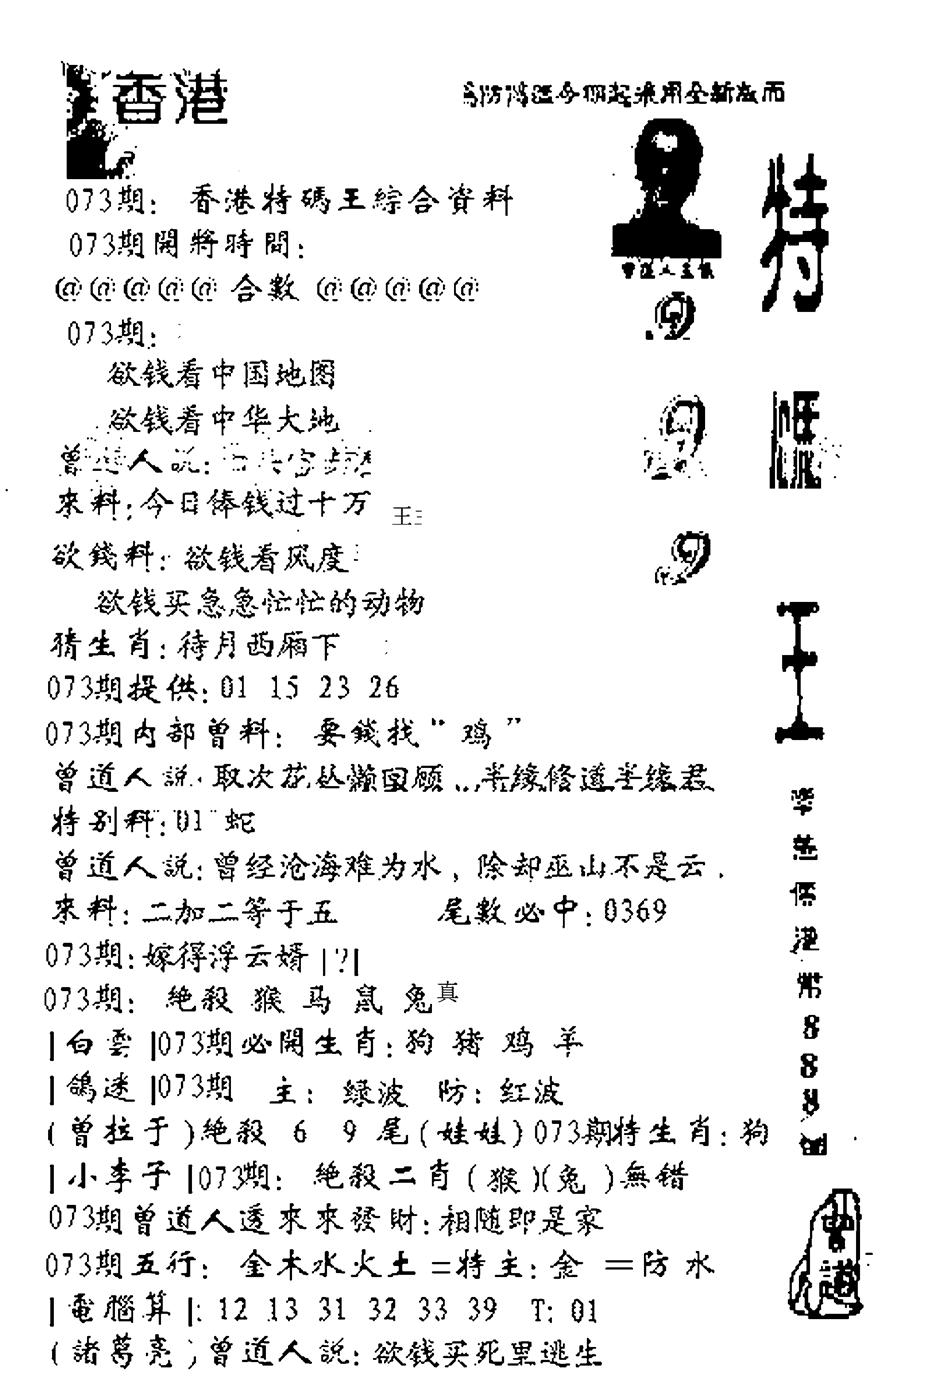 香港
防鴻濫今期起采用全新版面
073期: 香港特碼王綜合資料
073期開將時間:
@@@@@ 合數 @@@@@
073期:
欲钱看中国地图
欲钱看中华大地
曾道人説:
來料:今日俸钱过十万
王
欲錢料: 欲钱看风度
欲钱买急急忙忙的动物
猜生肖:待月西厢下
073期提供:01 15 23 26
073期内部曾料: 要錢找"鸡"
曾道人説:取次花丛懒回顾...半缘修道半缘君
特别料:"01"蛇
曾道人説:曾经沧海难为水, 除却巫山不是云.
來料:二加二等于五 尾數必中:0369
073期:嫁得浮云婿|?|
073期: 絶殺 猴 马 鼠 兔真
|白雲|073期必開生肖:狗 猪 鸡 羊
|鴿迷|073期 主: 绿波 防: 红波
(曾拉于)絶殺 6 9 尾(娃娃)073期特生肖:狗
|小李子|073期: 絶殺二肖(猴)(兔)無错
073期曾道人透來來發財:相随即是家
073期五行: 金木水火土=特主:金 =防水
|電腦算|:12 13 31 32 33 39 T:01
(諸葛亮)曾道人説:欲钱买死里逃生
曾道人主儀
特
碼
王
港
幣
8
8
8
曾道